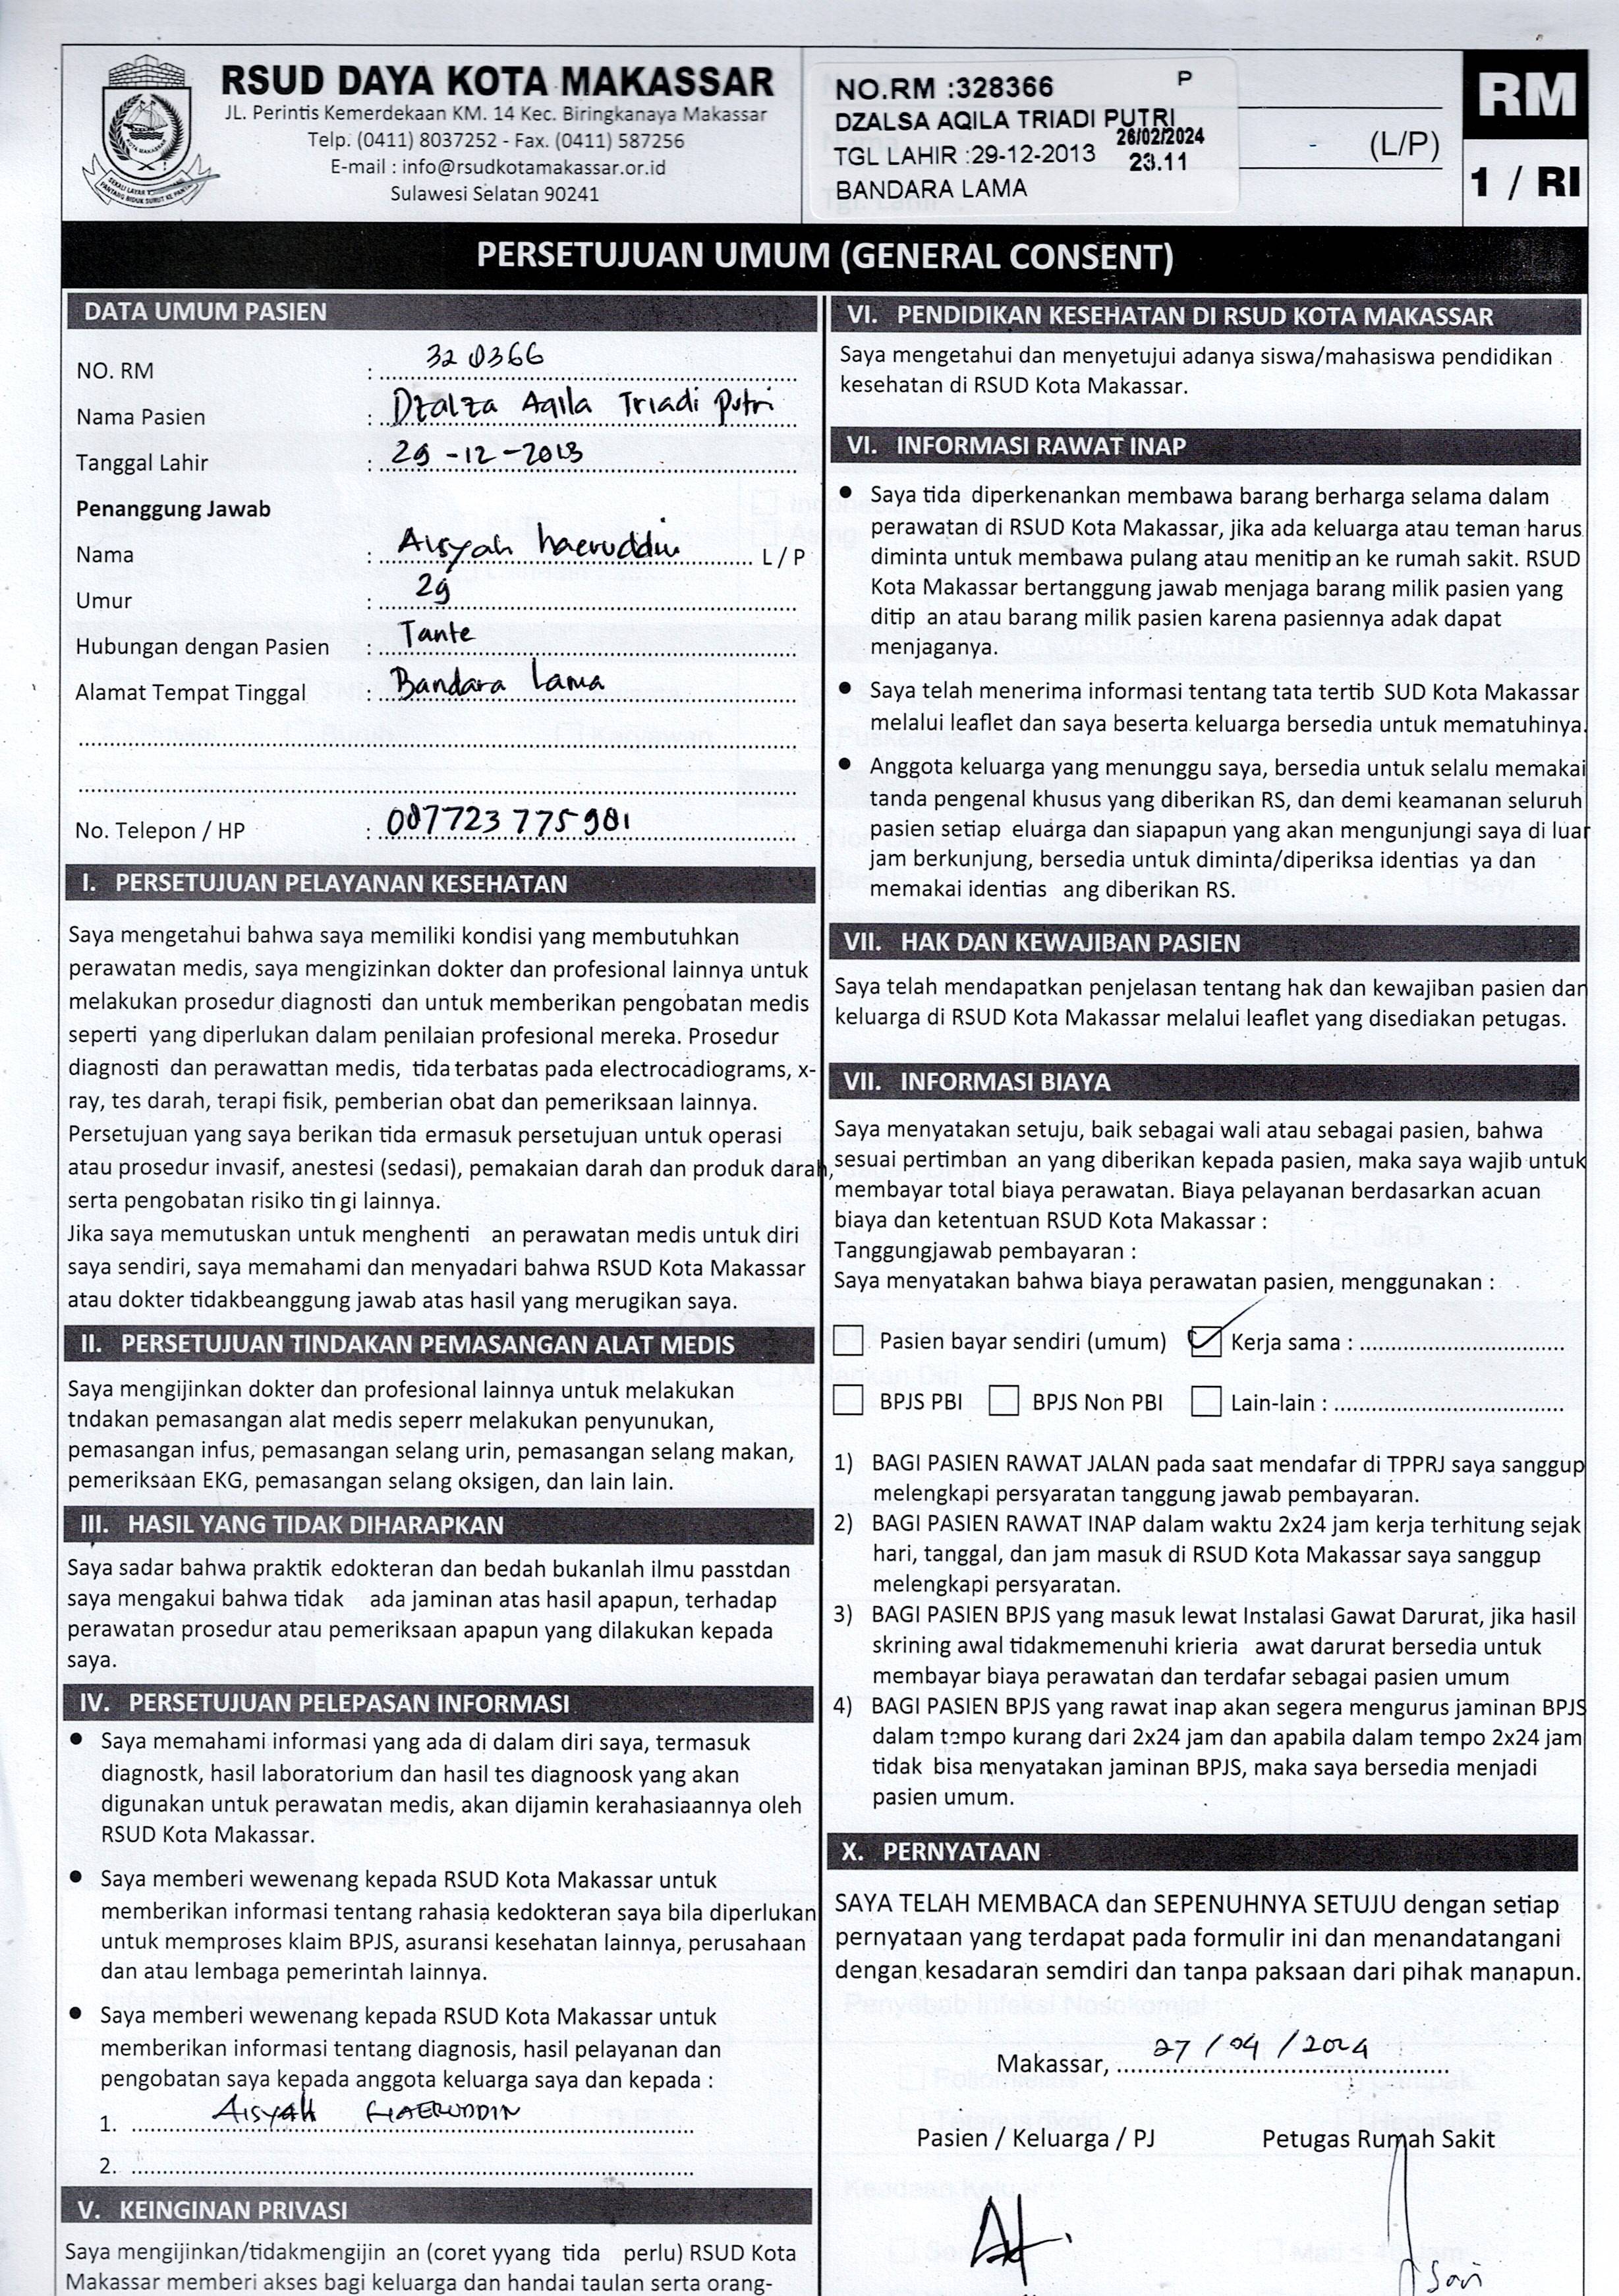 RSUD DAYA KOTA MAKASSAR
JL. Perintis Kemerdekaan KM. 14 Kec. Biringkanaya Makassar
Telp. (0411) 8037252 - Fax. (0411) 587256
E-mail : info@rsudkotamakassar.or.id
Sulawesi Selatan 90241
NO.RM :328366 P
DZALSA AQILA TRIADI PUTRI
26/02/2024
TGL LAHIR :29-12-2013 23.11
BANDARA LAMA
(L/P)
RM
1 / RI
PERSETUJUAN UMUM (GENERAL CONSENT)
DATA UMUM PASIEN
NO. RM : 328366
Nama Pasien : Dzalza Aqila Triadi putri
Tanggal Lahir : 29 -12 -2013
Penanggung Jawab
Nama : Aisyah haeruddin L / P
Umur : 29
Hubungan dengan Pasien : Tante
Alamat Tempat Tinggal : Bandara Lama
No. Telepon / HP : 087723775981
I. PERSETUJUAN PELAYANAN KESEHATAN
Saya mengetahui bahwa saya memiliki kondisi yang membutuhkan
perawatan medis, saya mengizinkan dokter dan profesional lainnya untuk
melakukan prosedur diagnosti dan untuk memberikan pengobatan medis
seperti yang diperlukan dalam penilaian profesional mereka. Prosedur
diagnosti dan perawattan medis, tida terbatas pada electrocadiograms, x-
ray, tes darah, terapi fisik, pemberian obat dan pemeriksaan lainnya.
Persetujuan yang saya berikan tida ermasuk persetujuan untuk operasi
atau prosedur invasif, anestesi (sedasi), pemakaian darah dan produk darah,
serta pengobatan risiko tin gi lainnya.
Jika saya memutuskan untuk menghenti an perawatan medis untuk diri
saya sendiri, saya memahami dan menyadari bahwa RSUD Kota Makassar
atau dokter tidakbeanggung jawab atas hasil yang merugikan saya.
II. PERSETUJUAN TINDAKAN PEMASANGAN ALAT MEDIS
Saya mengijinkan dokter dan profesional lainnya untuk melakukan
tndakan pemasangan alat medis seperr melakukan penyunukan,
pemasangan infus, pemasangan selang urin, pemasangan selang makan,
pemeriksaan EKG, pemasangan selang oksigen, dan lain lain.
III. HASIL YANG TIDAK DIHARAPKAN
Saya sadar bahwa praktik edokteran dan bedah bukanlah ilmu passtdan
saya mengakui bahwa tidak ada jaminan atas hasil apapun, terhadap
perawatan prosedur atau pemeriksaan apapun yang dilakukan kepada
saya.
IV. PERSETUJUAN PELEPASAN INFORMASI
• Saya memahami informasi yang ada di dalam diri saya, termasuk
diagnostk, hasil laboratorium dan hasil tes diagnoosk yang akan
digunakan untuk perawatan medis, akan dijamin kerahasiaannya oleh
RSUD Kota Makassar.
• Saya memberi wewenang kepada RSUD Kota Makassar untuk
memberikan informasi tentang rahasia kedokteran saya bila diperlukan
untuk memproses klaim BPJS, asuransi kesehatan lainnya, perusahaan
dan atau lembaga pemerintah lainnya.
• Saya memberi wewenang kepada RSUD Kota Makassar untuk
memberikan informasi tentang diagnosis, hasil pelayanan dan
pengobatan saya kepada anggota keluarga saya dan kepada :
1. AISYAH HAERUDDIN
2.
V. KEINGINAN PRIVASI
Saya mengijinkan/tidakmengijin an (coret yyang tida perlu) RSUD Kota
Makassar memberi akses bagi keluarga dan handai taulan serta orang-
VI. PENDIDIKAN KESEHATAN DI RSUD KOTA MAKASSAR
Saya mengetahui dan menyetujui adanya siswa/mahasiswa pendidikan
kesehatan di RSUD Kota Makassar.
VI. INFORMASI RAWAT INAP
• Saya tida diperkenankan membawa barang berharga selama dalam
perawatan di RSUD Kota Makassar, jika ada keluarga atau teman harus
diminta untuk membawa pulang atau menitip an ke rumah sakit. RSUD
Kota Makassar bertanggung jawab menjaga barang milik pasien yang
ditip an atau barang milik pasien karena pasiennya adak dapat
menjaganya.
• Saya telah menerima informasi tentang tata tertib SUD Kota Makassar
melalui leaflet dan saya beserta keluarga bersedia untuk mematuhinya.
• Anggota keluarga yang menunggu saya, bersedia untuk selalu memakai
tanda pengenal khusus yang diberikan RS, dan demi keamanan seluruh
pasien setiap eluarga dan siapapun yang akan mengunjungi saya di luar
jam berkunjung, bersedia untuk diminta/diperiksa identias ya dan
memakai identias ang diberikan RS.
VII. HAK DAN KEWAJIBAN PASIEN
Saya telah mendapatkan penjelasan tentang hak dan kewajiban pasien dan
keluarga di RSUD Kota Makassar melalui leaflet yang disediakan petugas.
VII. INFORMASI BIAYA
Saya menyatakan setuju, baik sebagai wali atau sebagai pasien, bahwa
sesuai pertimban an yang diberikan kepada pasien, maka saya wajib untuk
membayar total biaya perawatan. Biaya pelayanan berdasarkan acuan
biaya dan ketentuan RSUD Kota Makassar :
Tanggungjawab pembayaran :
Saya menyatakan bahwa biaya perawatan pasien, menggunakan :
☐ Pasien bayar sendiri (umum) ☑ Kerja sama :
☐ BPJS PBI ☐ BPJS Non PBI ☐ Lain-lain :
1) BAGI PASIEN RAWAT JALAN pada saat mendafar di TPPRJ saya sanggup
melengkapi persyaratan tanggung jawab pembayaran.
2) BAGI PASIEN RAWAT INAP dalam waktu 2x24 jam kerja terhitung sejak
hari, tanggal, dan jam masuk di RSUD Kota Makassar saya sanggup
melengkapi persyaratan.
3) BAGI PASIEN BPJS yang masuk lewat Instalasi Gawat Darurat, jika hasil
skrining awal tidakmemenuhi krieria awat darurat bersedia untuk
membayar biaya perawatan dan terdafar sebagai pasien umum
4) BAGI PASIEN BPJS yang rawat inap akan segera mengurus jaminan BPJS
dalam tempo kurang dari 2x24 jam dan apabila dalam tempo 2x24 jam
tidak bisa menyatakan jaminan BPJS, maka saya bersedia menjadi
pasien umum.
X. PERNYATAAN
SAYA TELAH MEMBACA dan SEPENUHNYA SETUJU dengan setiap
pernyataan yang terdapat pada formulir ini dan menandatangani
dengan kesadaran semdiri dan tanpa paksaan dari pihak manapun.
Makassar, 27 / 04 / 2024
Pasien / Keluarga / PJ Petugas Rumah Sakit